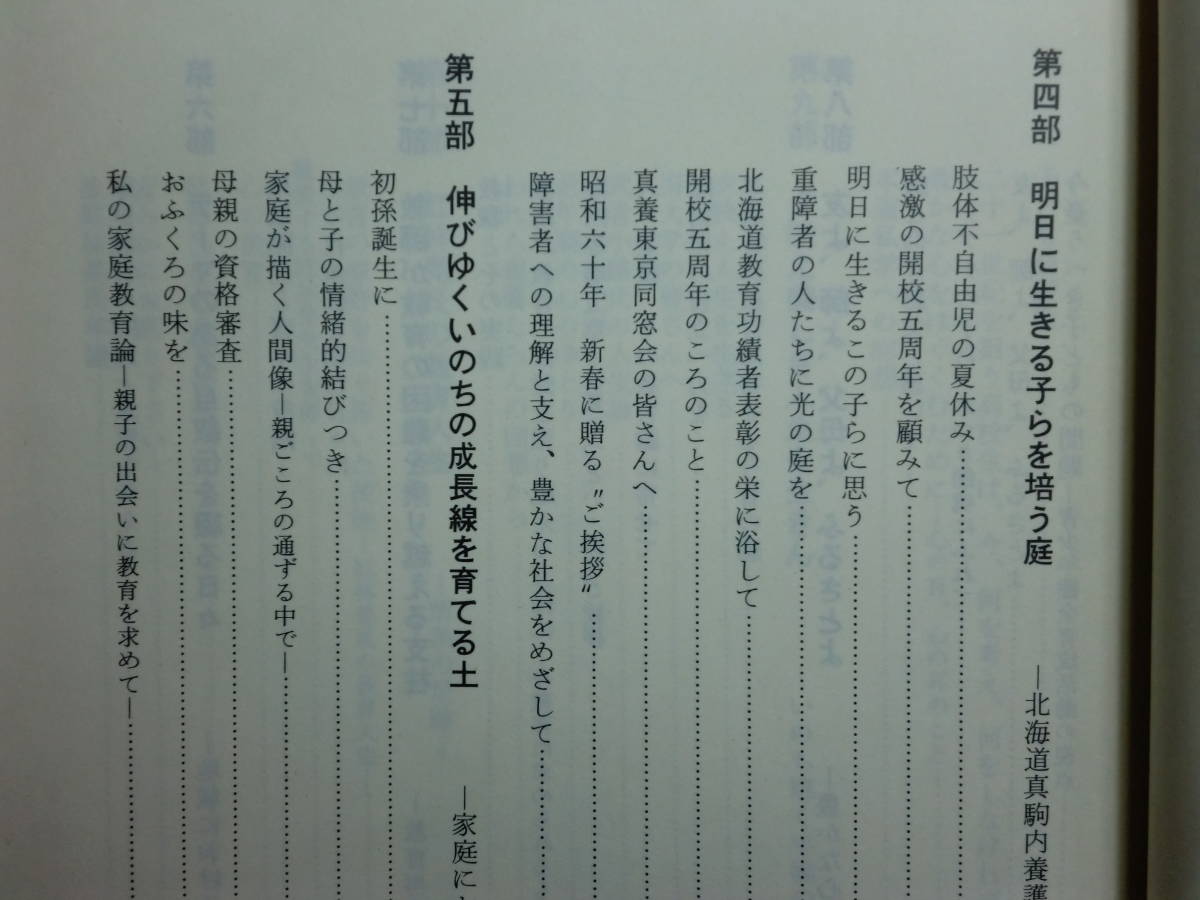 第四部　明日に生きる子らを培う庭　―北海道真駒内養護
肢体不自由児の夏休み…………………
感激の開校五周年を顧みて…………………
明日に生きるこの子らに思う…………………
重障者の人たちに光の庭を…………………
北海道教育功績者表彰の栄に浴して…………………
開校五周年のころのこと…………………
真養東京同窓会の皆さんへ…………………
昭和六十年　新春に贈る〝ご挨拶〟…………………
障害者への理解と支え、豊かな社会をめざして…………………
第五部　伸びゆくいのちの成長線を育てる土　―家庭に
初孫誕生に…………………
母と子の情緒的結びつき…………………
家庭が描く人間像―親ごころの通ずる中で―…………………
母親の資格審査…………………
おふくろの味を…………………
私の家庭教育論―親子の出会いに教育を求めて―…………………